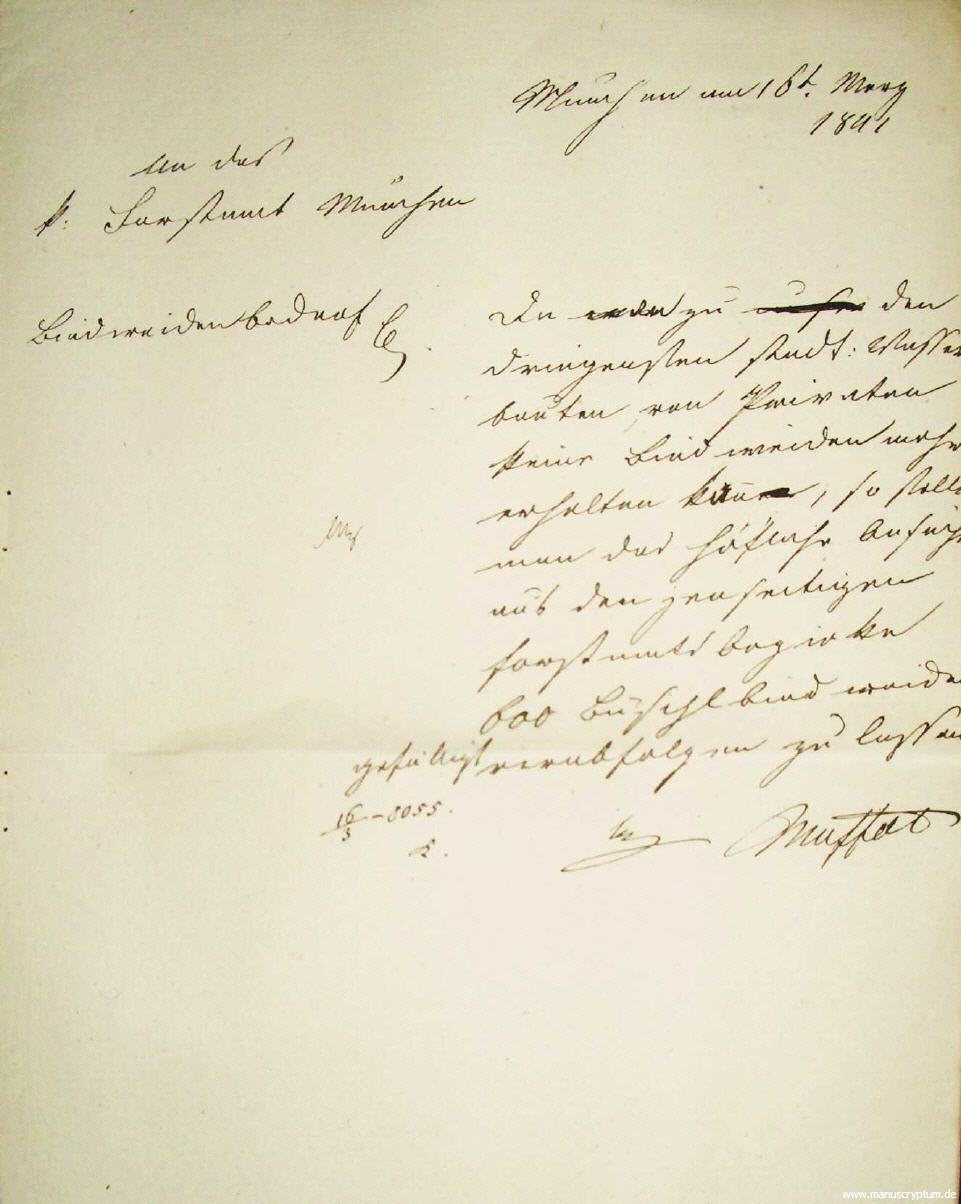 München am 16t. Merz
1841
An das
k: Forstamt München
Bindweidenbedarf
Da zu den
dringensten stadt: Wasser
bauten von Privaten
keine Bindweiden mehr
erhalten kann, so stellt
man das höfliche Ansuch
aus den jenseitigen
Forstamts bezirke
600 Büschl bind weide
gefälligst verabfolgen zu lassen
16/3 – 8055.
Muffat
www.manuscryptum.de